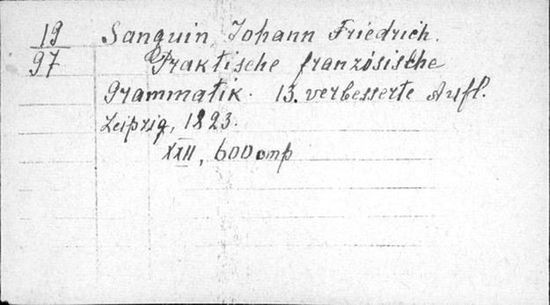 19
97
Sanguin, Johann Friedrich.
Praktische französische
Grammatik. 13. verbesserte Aufl.
Leipzig, 1823.
XXII, 600 стр